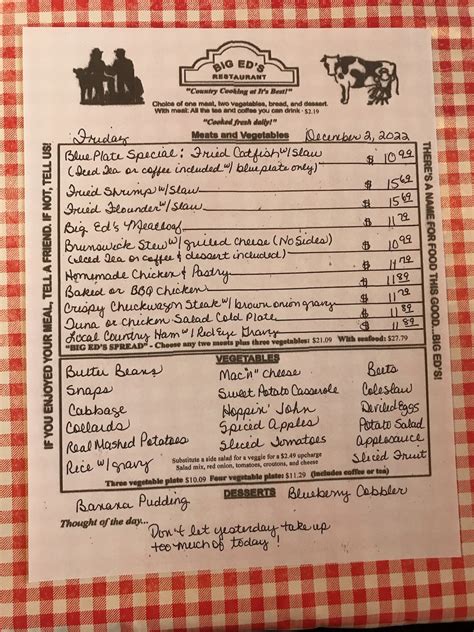 BIG ED'S
RESTAURANT
"Country Cooking at It's Best!"
Choice of one meat, two vegetables, bread, and dessert.
With meal: All the tea and coffee you can drink - $2.19
"Cooked fresh daily!"
Friday Meats and Vegetables December 2, 2022
Blue Plate Special: Fried Catfish w/Slaw $ 10.99
(Iced Tea or coffee included w/ blue plate only)
Fried Shrimp w/Slaw $
Fried Flounder w/Slaw $
Big Ed's Meatloaf $
Brunswick Stew w/ grilled cheese (No Sides) $ 10.99
(Iced Tea or Coffee & dessert included)
Homemade Chicken & Pastry $
Baked or BBQ Chicken $ 11.89
Crispy Chuckwagon Steak w/ brown onion gravy $ 11.89
Tuna or Chicken Salad Cold Plate $ 11.89
Local Country Ham w/ Red Eye Gravy $ 11.89
"BIG ED'S SPREAD" - Choose any two meats plus three vegetables: $21.09 With seafood: $27.79
VEGETABLES
Butter Beans Mac "n" Cheese Beets
Snaps Sweet Potato Casserole Coleslaw
Cabbage Hoppin' John Deviled Eggs
Collards Spiced Apples Potato Salad
Real Mashed Potatoes Sliced Tomatoes Applesauce
Rice w/ gravy Sliced Fruit
Substitute a side salad for a veggie for a $2.49 upcharge
Salad mix, red onion, tomatoes, croutons, and cheese
Three vegetable plate $10.09 Four vegetable plate: $11.29 (includes coffee or tea)
DESSERTS
Banana Pudding Blueberry Cobbler
Thought of the day...
Don't let yesterday take up
too much of today!
IF YOU ENJOYED YOUR MEAL, TELL A FRIEND. IF NOT, TELL US!
THERE'S A NAME FOR FOOD THIS GOOD...BIG ED'S!